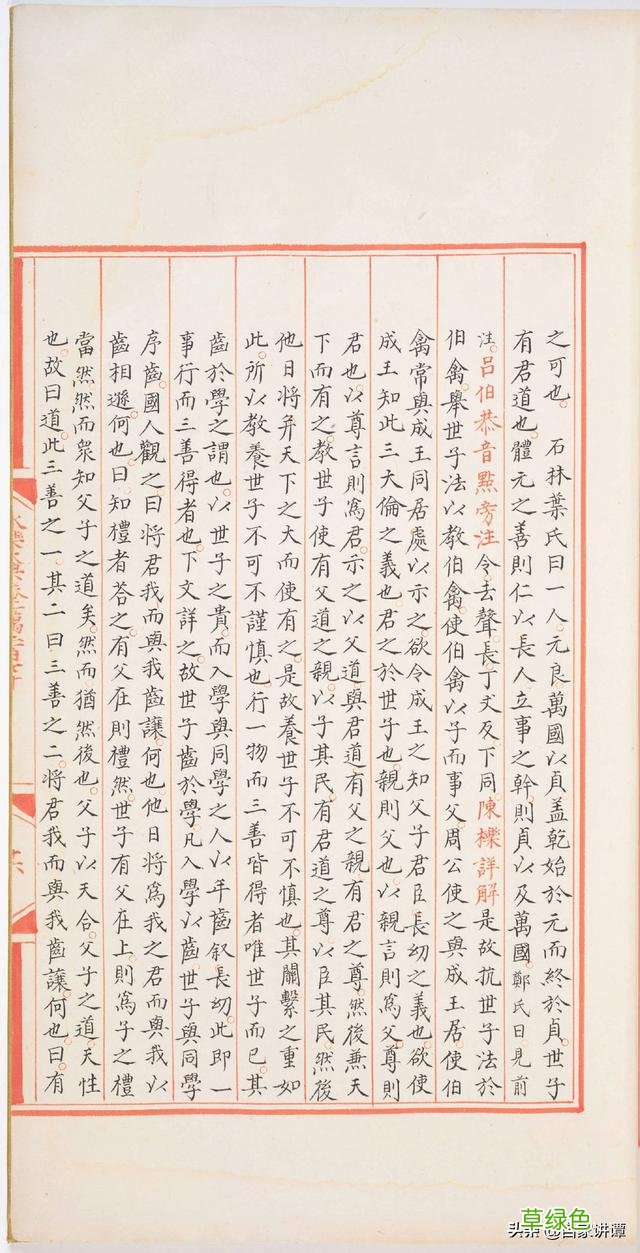 之可也。石林葉氏曰一人。元良萬國以貞盖乾始於元而終於貞。世子
有君道也。體元之善則仁以長人立事之幹。則貞以及萬國。鄭氏曰。見前
注。呂伯恭音點旁注令。去聲。長丁丈反。下同。陳櫟詳解是故抗世子法於
伯禽。舉世子法以教伯禽。使伯禽以子而事父。周公使之與成王居。使伯
禽常與成王同居處。以示之。欲令成王之知父子君臣長幼之義也。欲使
成王知此三大倫之義也。君之於世子也。親則父也。以親言則爲父。尊則
君也。以尊言則爲君。示之以父道與君道有父之親。有君之尊。然後兼天
下而有之。教世子使有父道之親。以子其民。有君道之尊以臣其民。然後
他日將弁天下之大而使有之。是故養世子不可不慎也。其關繫之重如
此。所以教養世子不可不謹慎也。行一物而三善皆得者唯世子而已。其
齒於學之謂也。以世子之貴。而入學與同學之人以年齒叙長幼。此即一
事行而三善得者也。下文詳之。故世子齒於學。凡入學以齒世子與同學
序齒。國人觀之。曰將君我而與我齒讓。何也。他日將爲我之君而與我以
齒相遜。何也。曰知禮者荅之有父在則禮然。世子有父在上。則爲子之禮
當然。然而衆知父子之道矣。然而猶然後也。父子以天合。父子之道。天性
也。故曰道。此三善之一。其二曰三善之二。將君我而與我齒讓。何也。曰。有
草绿色